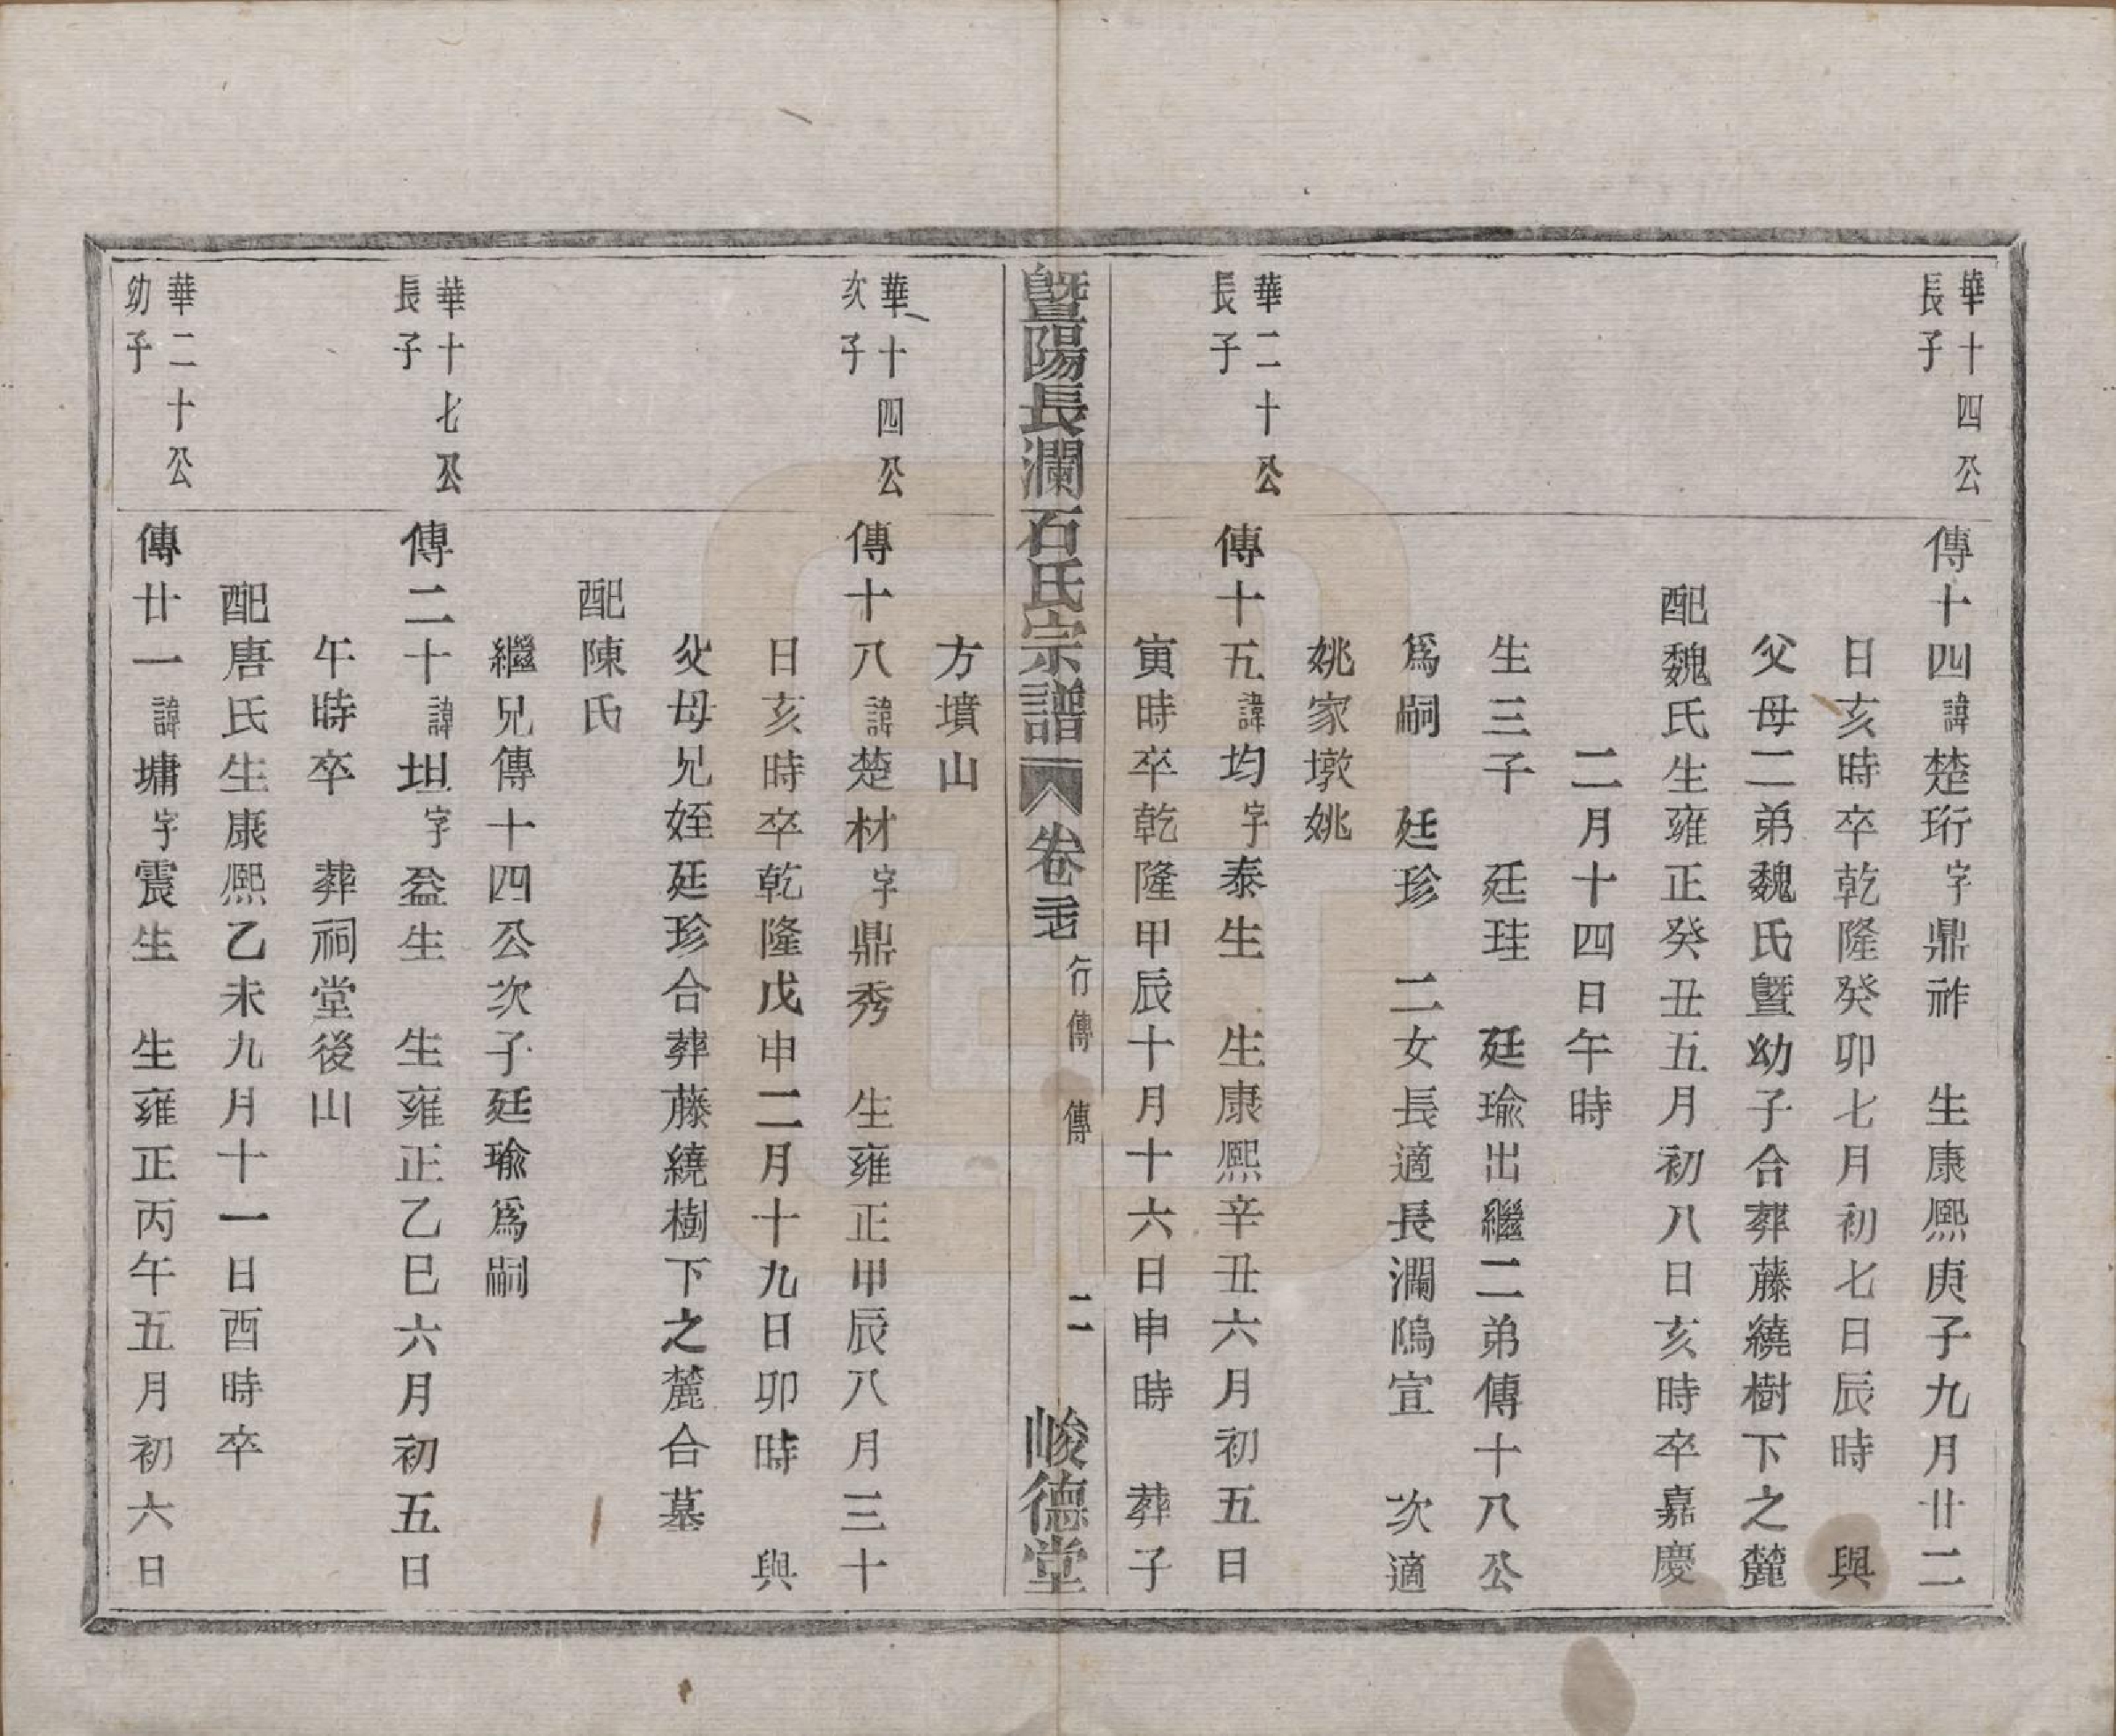 華十四公
長子
傳十四諱楚珩字鼎祚　生康熙庚子九月廿二
日亥時卒乾隆癸卯七月初七日辰時　與
父母二弟魏氏曁幼子合葬藤繞樹下之麓
配魏氏生雍正癸丑五月初八日亥時卒嘉慶
二月十四日午時
生三子　廷珪　廷瑜出繼二弟傳十八公
爲嗣　廷珍　二女長適長瀾隝宣　次適
姚家墩姚
華二十公
長子
傳十五諱均字泰生　生康熙辛丑六月初五日
寅時卒乾隆甲辰十月十六日申時　葬子
曁陽長瀾石氏宗譜　卷　行傳　傳　二　峻德堂
方墳山
華十四公
次子
傳十八諱楚材字鼎秀　生雍正甲辰八月三十
日亥時卒乾隆戊申二月十九日卯時　與
父母兄姪廷珍合葬藤繞樹下之麓合墓
配陳氏
繼兄傳十四公次子廷瑜爲嗣
華十七公
長子
傳二十諱坦字盈生　生雍正乙巳六月初五日
午時卒　葬祠堂後山
配唐氏生康熙乙未九月十一日酉時卒
華二十公
幼子
傳廿一諱墉字震生　生雍正丙午五月初六日